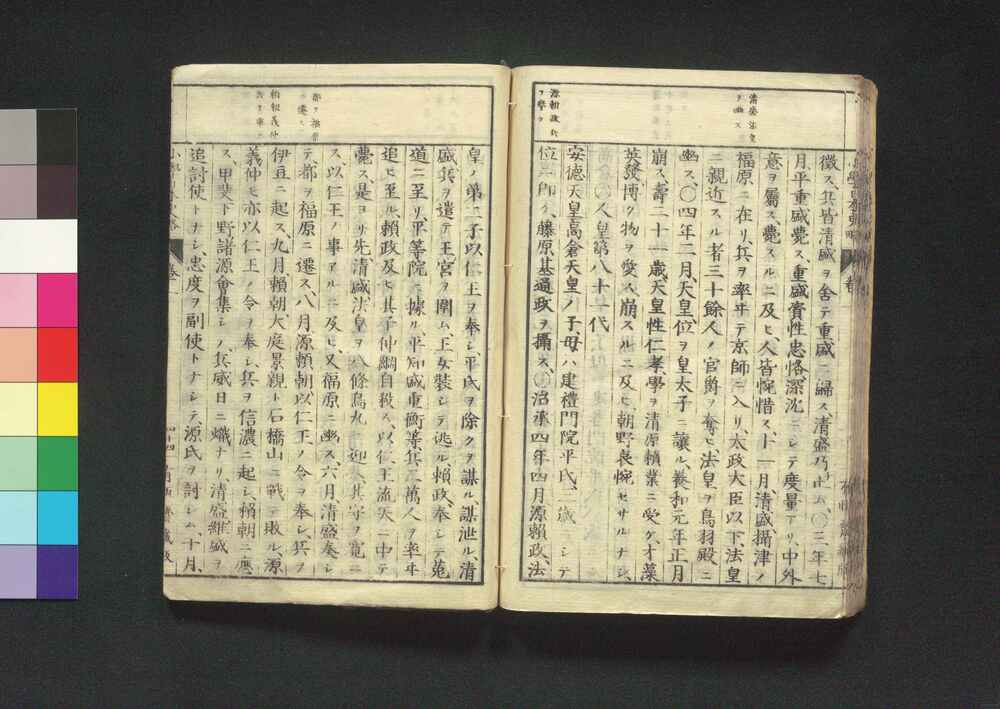 清盛法皇
ヲ幽ス
源頼政兵
ヲ擧ク
徴ス、其皆清盛ヲ舍テ重盛ニ歸ス、清盛乃チ止ム、〇三年七
月平重盛薨ス、重盛資性忠恪深沈ニシテ度量アリ、中外
意ヲ屬ス、薨スルニ及ヒ、人皆惋惜ス、十一月、清盛攝津ノ
福原ニ在リ、兵ヲ率ヰテ京師ニ入リ、太政大臣以下法皇
ニ親近スル者三十餘人ノ官爵ヲ奪ヒ、法皇ヲ鳥羽殿ニ
幽ス、〇四年二月、天皇位ヲ皇太子ニ讓ル、養和元年正月
崩ス、壽二十一歳、天皇性仁孝學ヲ清原頼業ニ受ク、才藻
英發博ク物ヲ愛ス、崩スルニ及ヒ朝野哀惋セサルナシ、
〇人皇第八十一代
安德天皇高倉天皇ノ子、母ハ建禮門院平氏、二歳ニシテ
位ニ即ク、藤原基通政ヲ攝ス、〇治承四年四月源頼政、法
都ヲ福原
ニ遷ス
頼朝義仲
兵ヲ擧ク
皇ノ第二子以仁王ヲ奉シ、平氏ヲ除クヲ謀ル、謀泄ル、清
盛兵ヲ遣テ王宮ヲ圍ム、王女裝シテ逃ル、頼政、奉シテ菟
道ニ至リ、平等院ニ據ル、平知盛重衡等、兵二萬人ヲ率ヰ
追ヒ至ル、頼政及ヒ其子仲綱自殺ス、以仁王流矢ニ中テ
薨ス、是ヨリ先清盛法皇ヲ八條烏丸ニ迎ヘ、其守ヲ寛ニ
ス、以仁王ノ事アルニ及ヒ、又福原ニ幽ス、六月清盛奏シ
テ、都ヲ福原ニ遷ス、八月源頼朝以仁王ノ令ヲ奉シ、兵ヲ
伊豆ニ起ス、九月頼朝、大庭景親ト石橋山ニ戰テ敗ル、源
義仲モ亦以仁王ノ令ヲ奉シ、兵ヲ信濃ニ起シ、頼朝ニ應
ス、甲斐下野諸源會集シ、兵威日ニ熾ナリ、清盛維盛ヲ
追討使トナシ、忠度ヲ副使トナシテ、源氏ヲ討シム、十月、